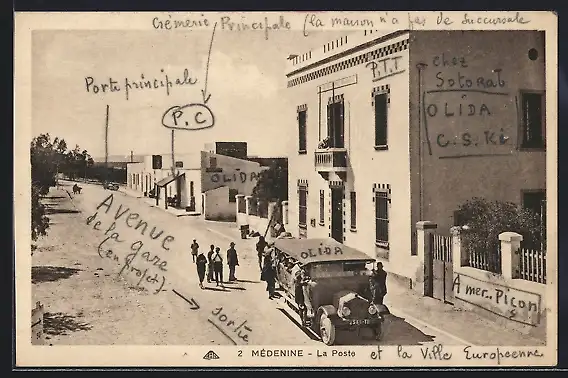 Crèmerie Principale (la maison n'a pas de succursale
Porte principale
P.C
P.T.T
chez
Sotorab
OLIDA
C.S.Ki
LA POSTE
OLIDA
Avenue
de la gare
(en projet)
OLIDA
Sortie
Amer.. Picon
2 MÉDENINE - La Poste et la Ville Européenne